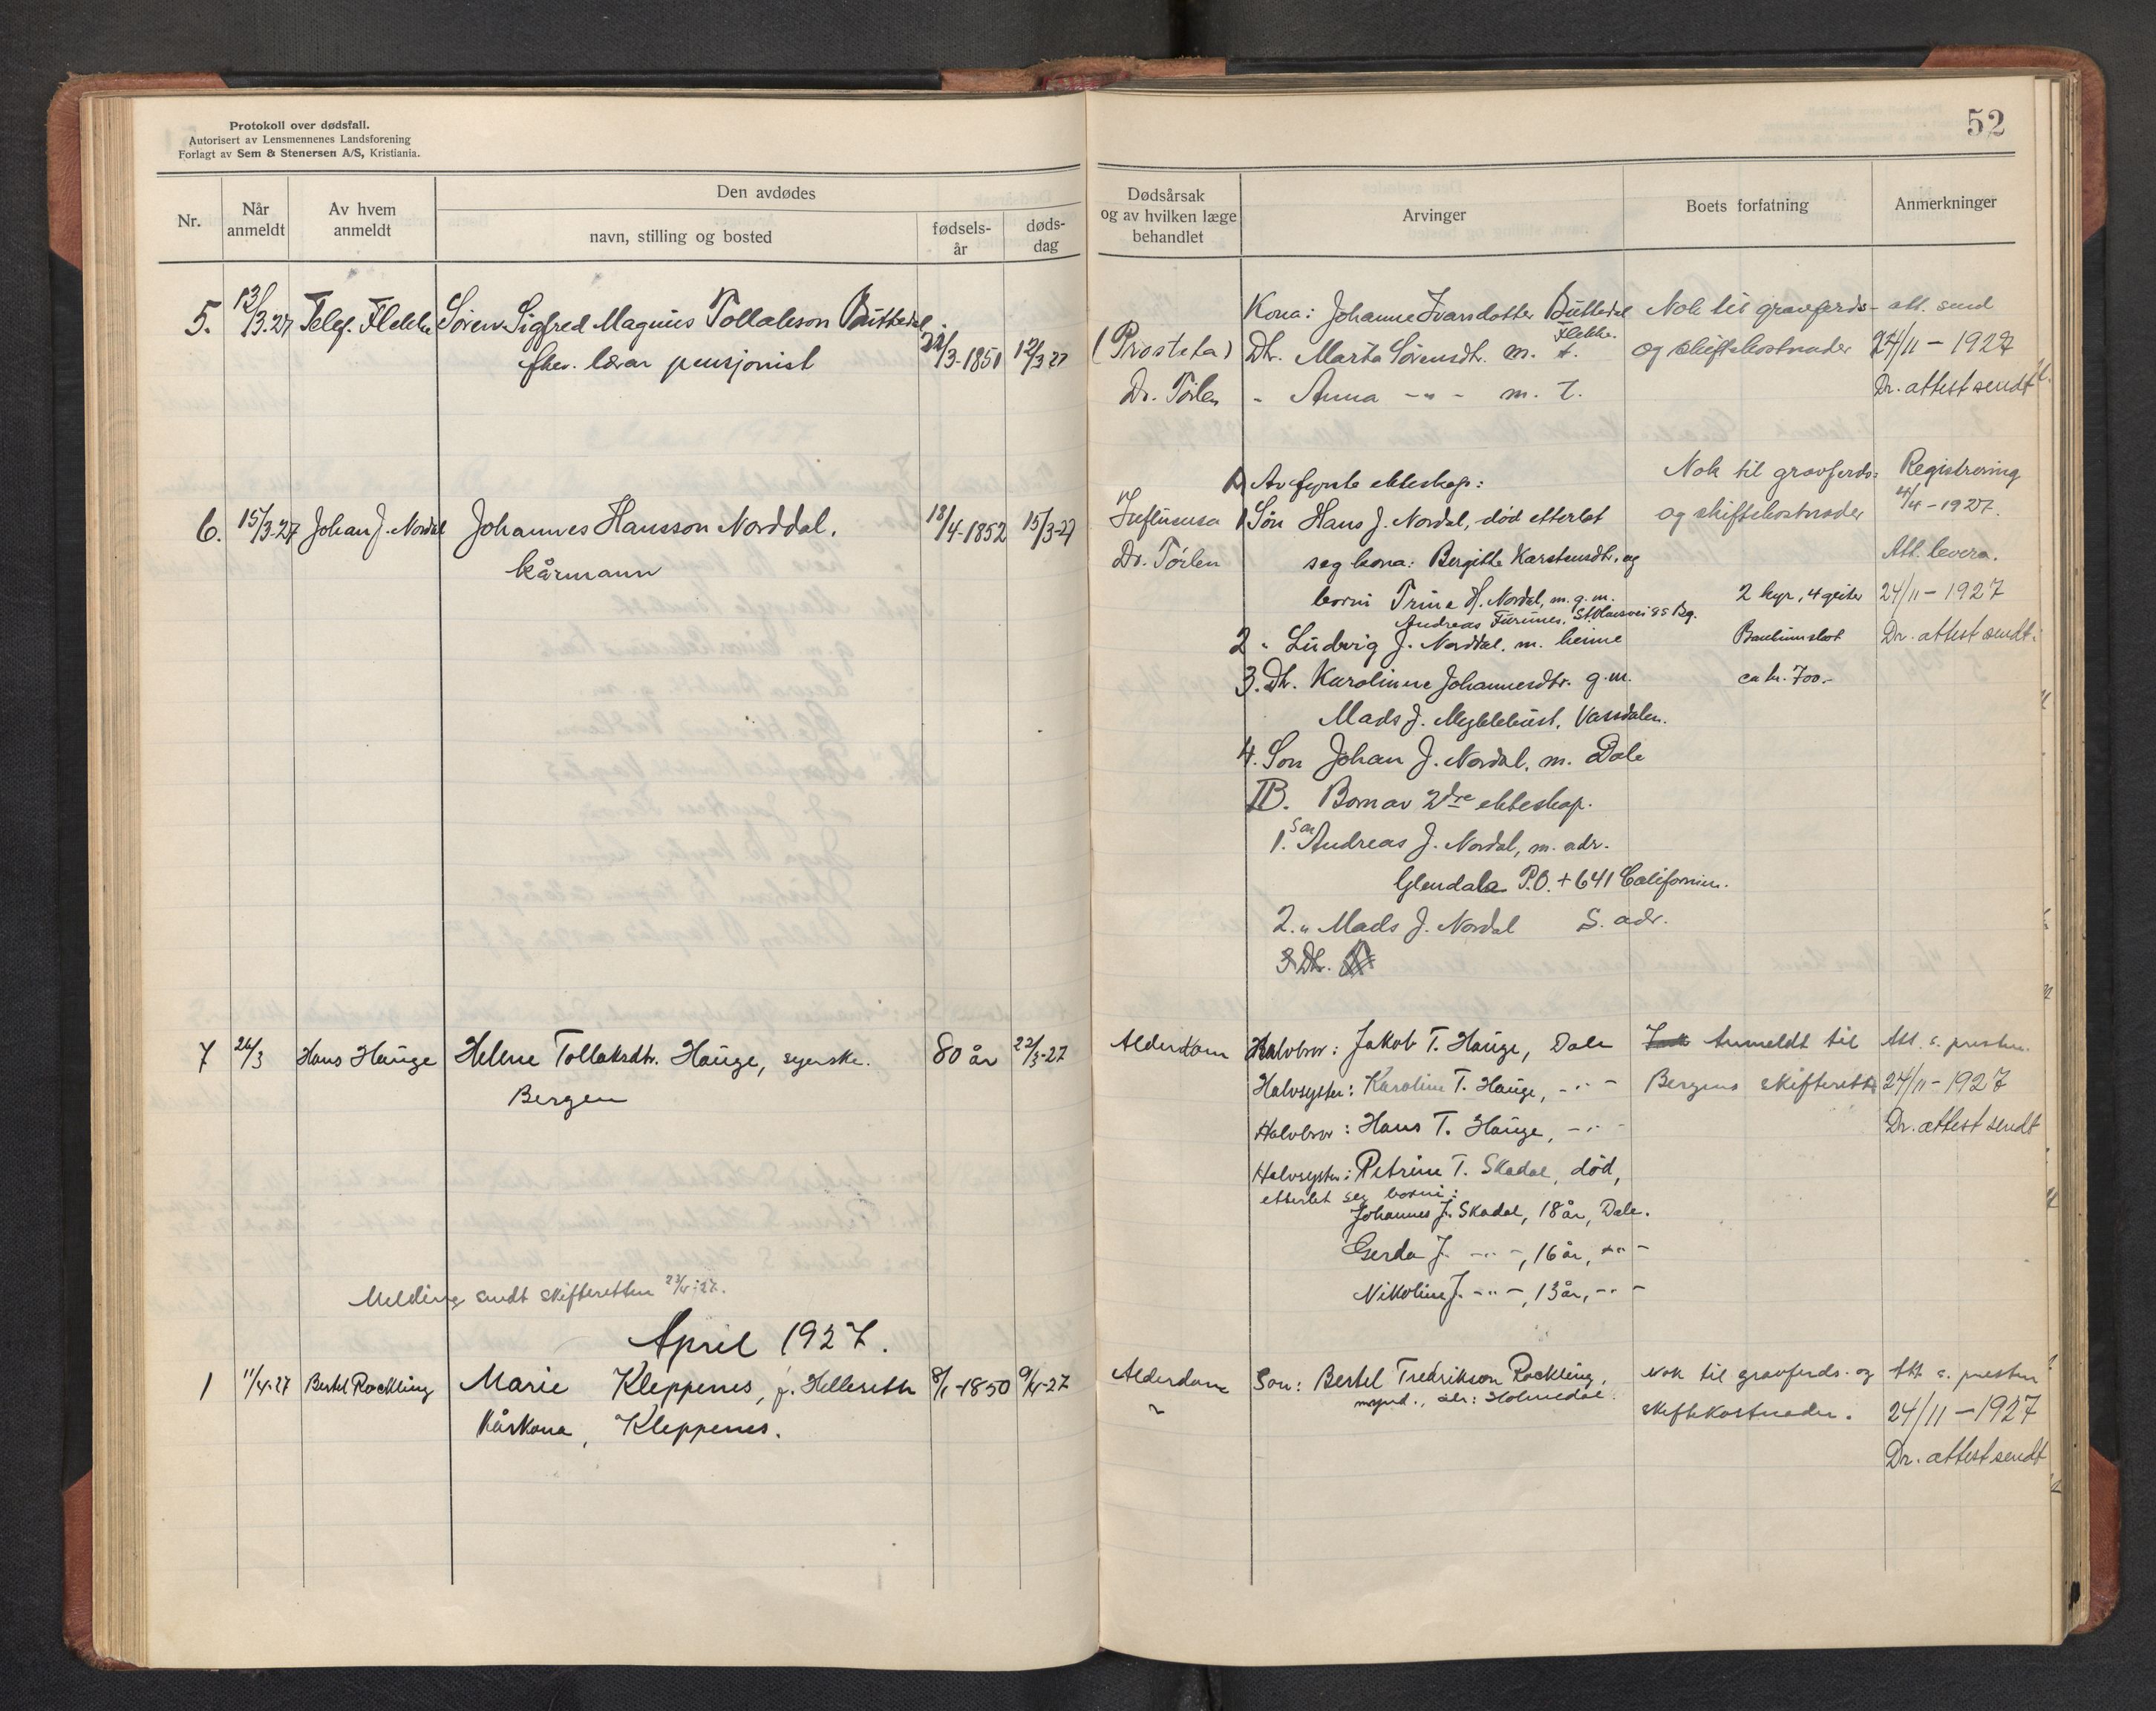 Protokoll over dødsfall.
Autorisert av Lensmennenes Landsforening
Forlagt av Sem & Stenersen A/S, Kristiania.
52
Nr.
Når anmeldt
Av hvem anmeldt
Den avdødes
navn, stilling og bosted
fødsels-år
døds-dag
Dødsårsak og av hvilken læge behandlet
Arvinger
Boets forfatning
Anmerkninger
5. 13/3.27 Telef. Flekke Søren Sigfred Magnus Tollakson Buttedal.
fhev. lærar pensjonist
22/3-1851 12/3 27
(Prosteta)
Dr. Tørlen
Kona: Johanne Ivarsdotter Buttedal
Flekke.
Dtr. Marta Sørensdtr. m. t.
" Anna -"- m. t.
Nok til gravferds-
og skiftekostnader
att. send
24/11 - 1927
Dr. attest sendt
6. 15/3-27 Johan J. Nordal Johannes Hansson Norddal.
kårmann
18/4-1852 15/3-27
Influensa
Dr. Tørlen
A Av fyrste ekteskap:
1 Søn Hans J. Nordal, død etterlet
seg kona: Bergitte Karstensdtr. og
borni Trine H. Nordal, m. g. m.
Andreas Furunes, St. Olavsvei 85 Bg.
2 " Ludvig J. Norddal. m. heime
3. Dtr. Karoline Johannesdtr. g.m.
Mads J. Myklebust, Vassdalen.
4. Son Johan J. Nordal. m. Dale
B. Born av 2dre ekteskap.
1. Son Andreas J. Nordal, m. adr.
Glendale P.O. + 641 Californien.
2. " Mads J. Nordal S. adr.
3 Dtr.
Nok til gravferds-
og skiftekostnader
2 kyr, 4 geiter
Bankinnskot
ca kr. 700.-
Registrering
4/4 - 1927.
Att. levera.
24/11 - 1927
Dr. attest sendt.
7 26/3 Hans Hauge Helene Tollaksdtr. Hauge, syerske.
Bergen
80 år 22/3-27
Alderdom
Halvbror: Jakob T. Hauge, Dale
Halvsyster: Karoline T. Hauge, -"-
Halvbror: Hans T. Hauge, -"-
Halvsyster: Petrine T. Skadal, død,
etterlet seg borni:
Johannes J. Skadal, 18 år, Dale.
Gerda J. -"-, 16 år, -"-
Nikoline J. -"-, 13 år, -"-
Anmeldt til
Bergens skifterett
Att. s. presten.
24/11 - 1927
Dr. attest sendt
Melding sendt skifteretten
April 1927.
1 11/4-27 Bertel Rockling Marie Kleppenes, f. Hellesetb
Kårkona, Kleppenes.
8/1-1850 9/4-27
Alderdom
Son: Bertel Fredrikson Rockling,
mynd., adr: Holmedal.
Nok til gravferds- og
skiftekostnader.
Att s. presten
24/11 - 1927
Dr. attest sendt